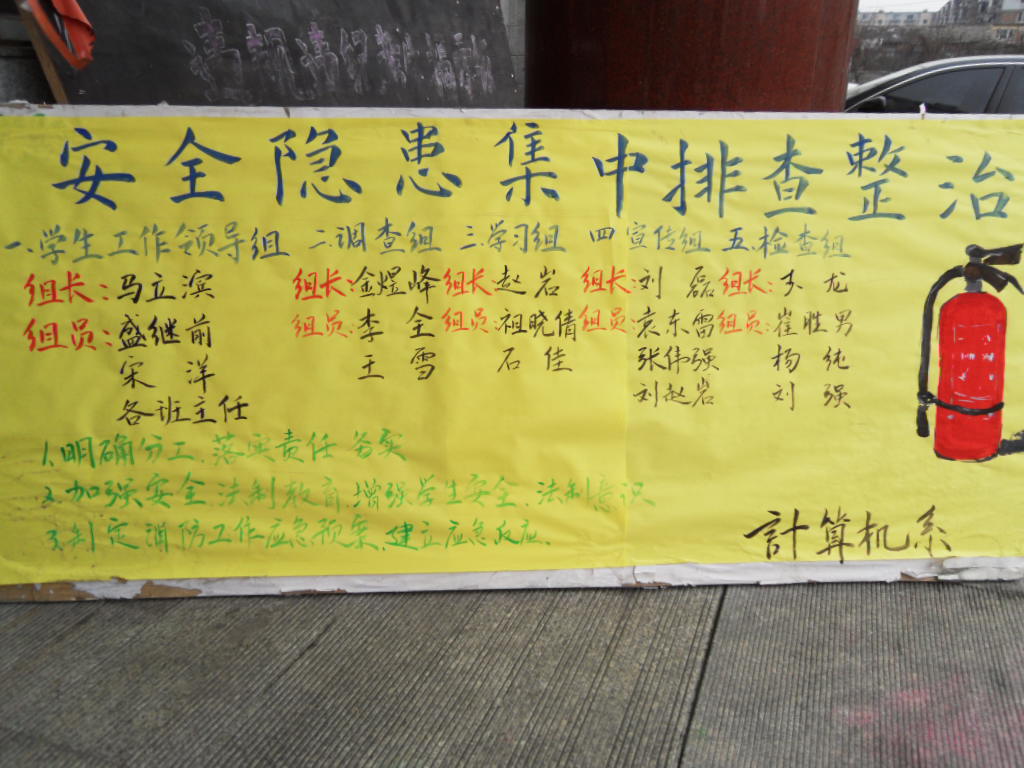 安全隐患集中排查整治
一.学生工作领导组 二.调查组 三.学习组 四宣传组 五.检查组
组长:马立滨 组长:金煜峰 组长:赵岩 组长:刘磊 组长:于龙
组员:盛继前 组员:李全 组员:祖晓倩 组员:袁东雷 组员:崔胜男
宋洋 王雪 石佳 张伟强 杨纯
各班主任 刘赵岩 刘强
1.明确分工.落实责任 务实
2.加强安全.法制教育.增强学生安全.法制意识
3.制定消防工作应急预案.建立应急反应.
計算机系